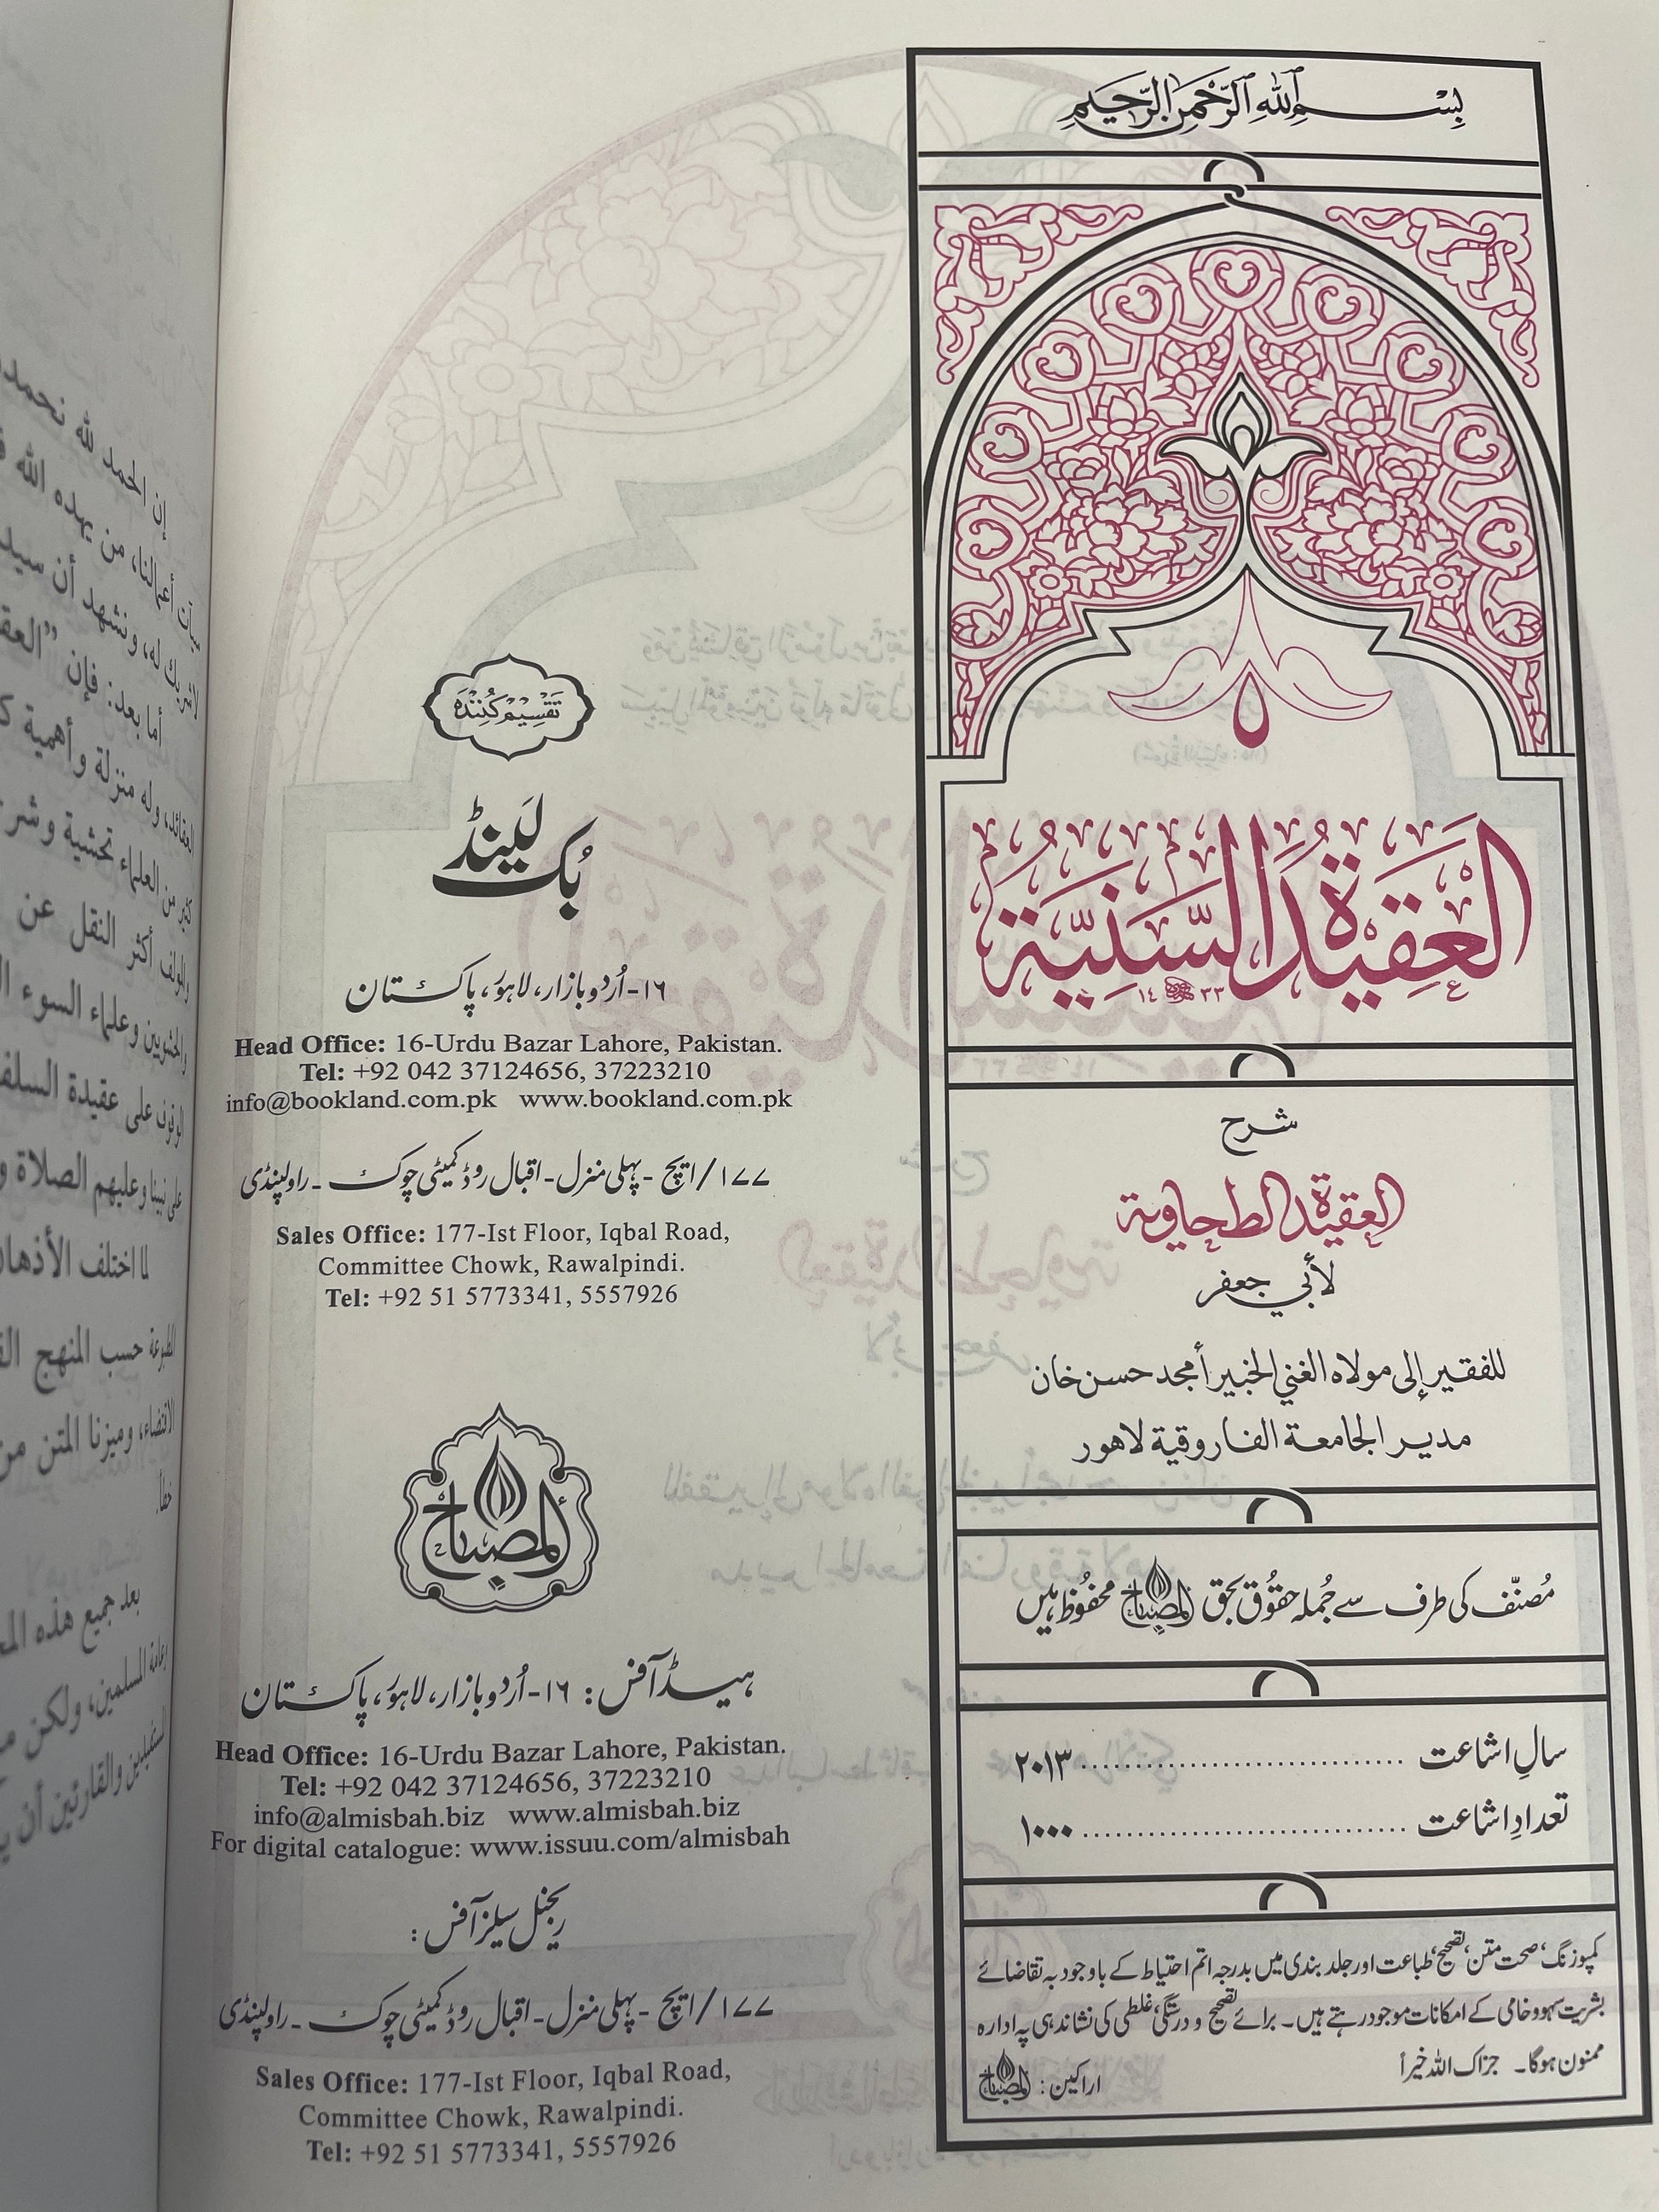 بِسْمِ اللّٰهِ الرَّحْمٰنِ الرَّحِيْمِ
العَقِيْدَةُ السَّنِيَّةُ
١٤٣٣
شرح
العقيدة الطحاوية
لأبي جعفر
للفقير إلى مولاه الغني الخبير أمجد حسن خان
مدير الجامعة الفاروقية لاهور
مُصنّف کی طرف سے جُملہ حقُوق بحق المصباح محفُوظ ہیں
سالِ اشاعت .............................. ۲۰۱۳
تعدادِ اشاعت .............................. ۱۰۰۰
کمپوزنگ، صحت متن، تصحیح، طباعت اور جلد بندی میں بدرجہ اتم احتیاط کے باوجود بہ تقاضائے
بشریت سہو و خامی کے امکانات موجود رہتے ہیں۔ برائے تصحیح و درستگی، غلطی کی نشاندہی پہ ادارہ
ممنون ہوگا۔ جزاک اللہ خیراً
اراکین: المصباح
تَقْسِیْم کُنِنْدَہ
بُک لَینڈ
۱۶-اُردو بازار، لاہور، پاکستان
Head Office: 16-Urdu Bazar Lahore, Pakistan.
Tel: +92 042 37124656, 37223210
info@bookland.com.pk www.bookland.com.pk
۱۷۷/ایچ - پہلی منزل - اقبال روڈ کمیٹی چوک - راولپنڈی
Sales Office: 177-Ist Floor, Iqbal Road,
Committee Chowk, Rawalpindi.
Tel: +92 51 5773341, 5557926
المصباح
ہیڈ آفس: ۱۶-اُردو بازار، لاہور، پاکستان
Head Office: 16-Urdu Bazar Lahore, Pakistan.
Tel: +92 042 37124656, 37223210
info@almisbah.biz www.almisbah.biz
For digital catalogue: www.issuu.com/almisbah
ریجنل سیلز آفس:
۱۷۷/ایچ - پہلی منزل - اقبال روڈ کمیٹی چوک - راولپنڈی
Sales Office: 177-Ist Floor, Iqbal Road,
Committee Chowk, Rawalpindi.
Tel: +92 51 5773341, 5557926
إن الحمد لله نحمد
أعمالنا، من يهده الله
له، ونشهد أن
أما بعد: فإن "العق
وله منزلة وأهمية
من العلماء تحشية
أكثر النقل عن
وعلماء السوء
على عقيدة السلف
نبينا وعليهم الصلاة
لما اختلف الأذهان
حسب المنهج
وميزنا المتن من
بعد جميع هذه
المسلمين، ولكن
والقارئين أن